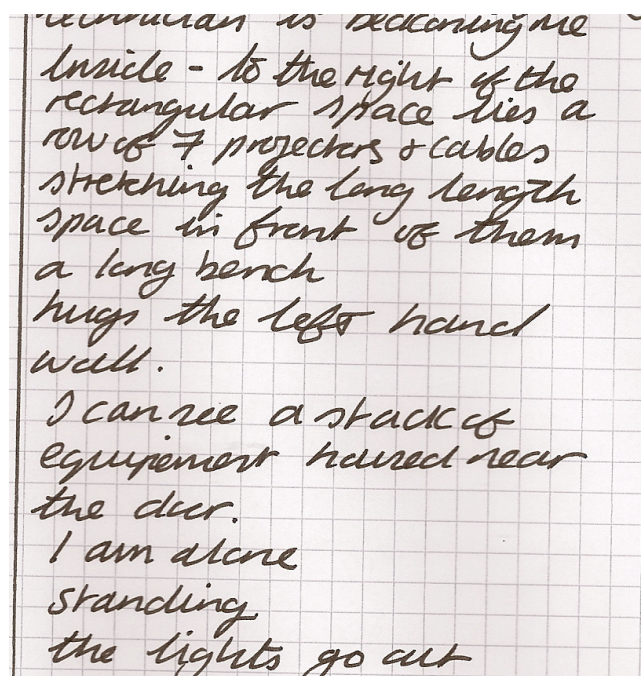 technician is beckoning me
Inside - to the right of the
rectangular space lies a
row of 7 projectors & cables
stretching the long length
space in front of them
a long bench
hugs the left hand
wall.
I can see a stack of
equipement housed near
the door.
I am alone
standing
the lights go out